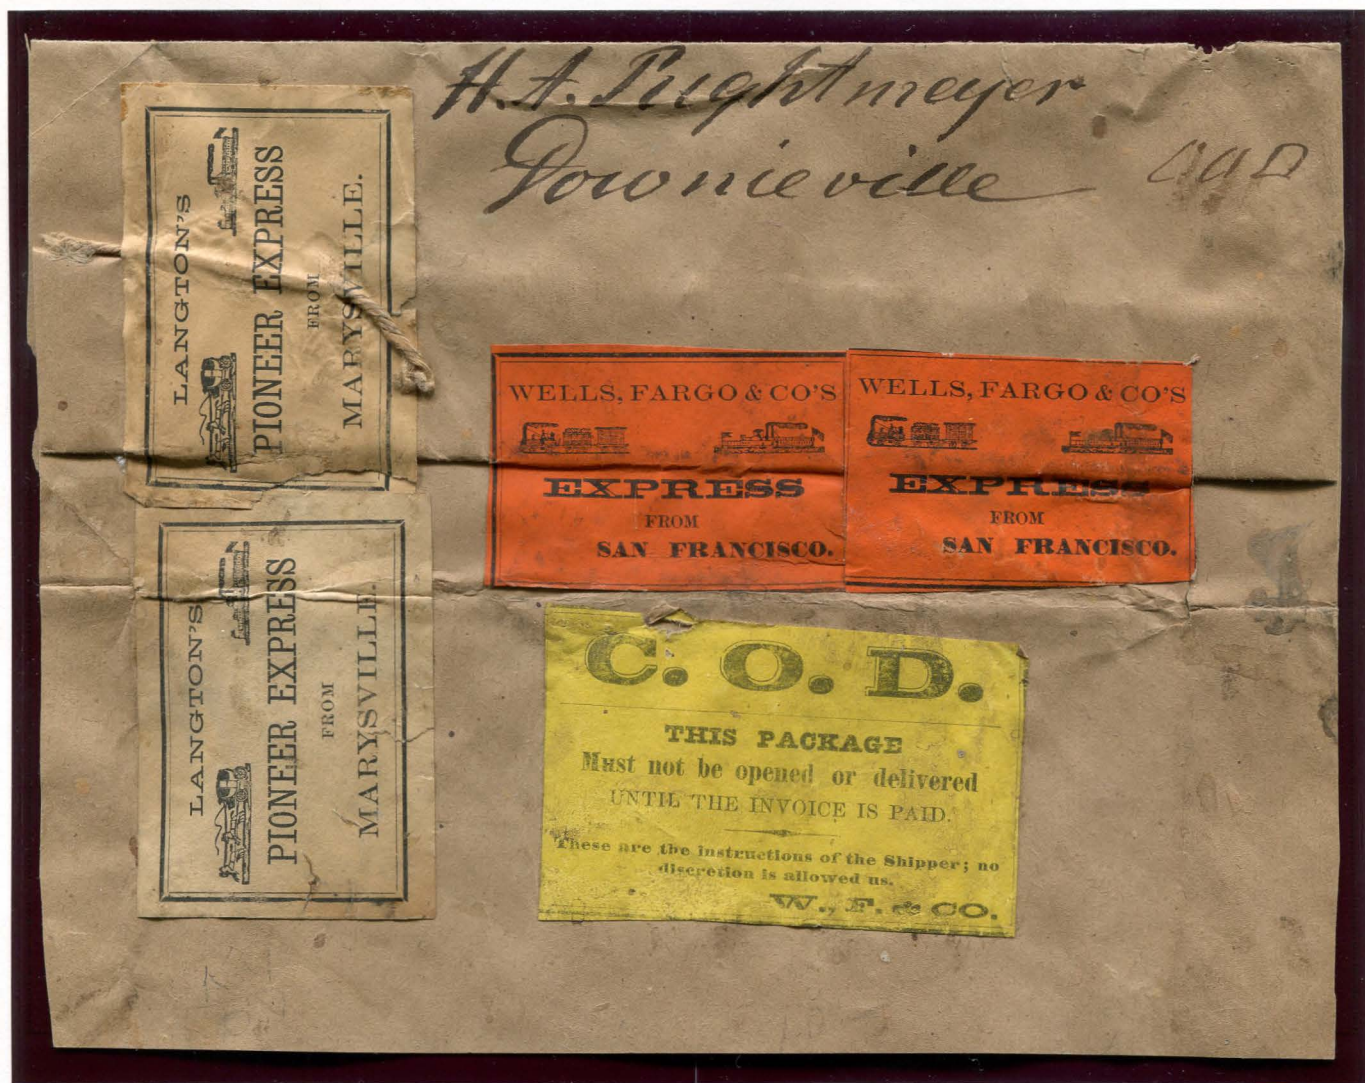 H. A. Rightmeyer
Downieville
COD
LANGTON'S
PIONEER EXPRESS
FROM
MARYSVILLE.
LANGTON'S
PIONEER EXPRESS
FROM
MARYSVILLE.
WELLS, FARGO & CO'S
EXPRESS
FROM
SAN FRANCISCO.
WELLS, FARGO & CO'S
EXPRESS
FROM
SAN FRANCISCO.
C. O. D.
THIS PACKAGE
Must not be opened or delivered
UNTIL THE INVOICE IS PAID.
These are the instructions of the Shipper; no
discretion is allowed us.
W., F. & CO.